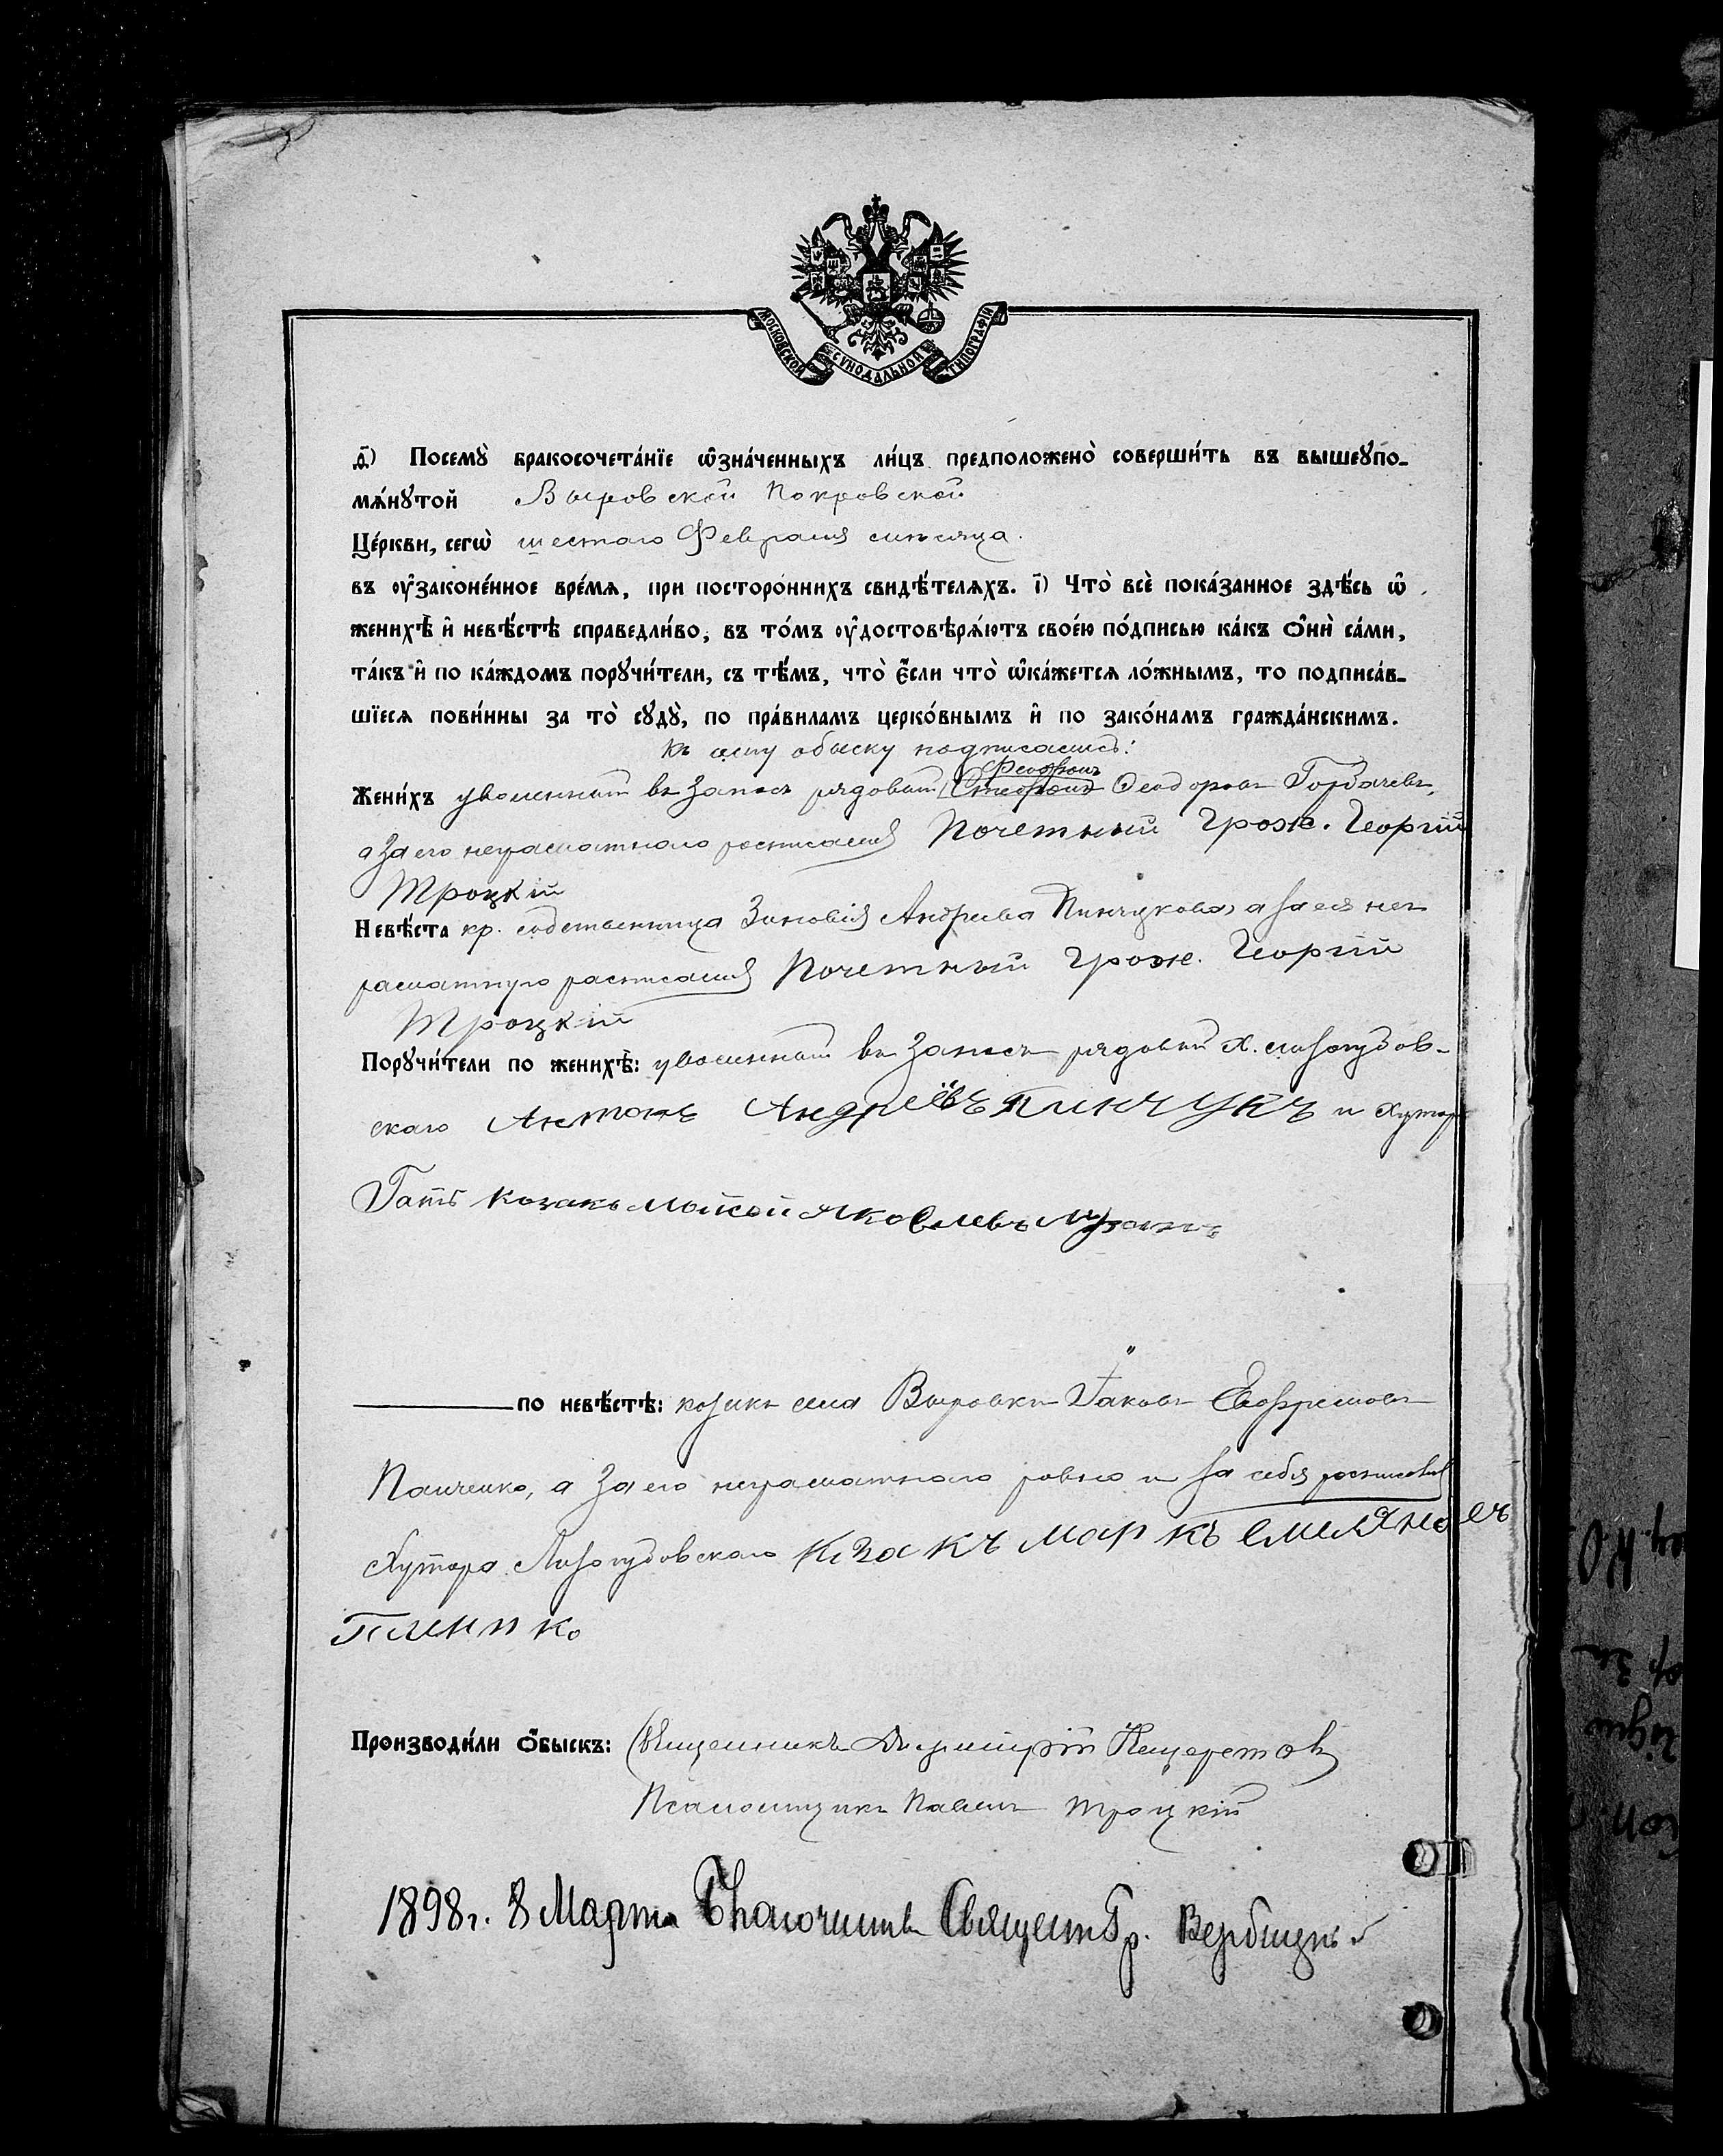 МОСКОВСКОЙ СУНОДАЛЬНОЙ ТИПОГРАФІИ
Ѳ҃) Посемꙋ̀ бракосочета́нїе ѡ҆зна́ченныхъ ли́цъ предположено̀ соверши́ть въ вышеꙋпо-
мѧ́нꙋтой Выровской Покровской
Це́ркви, сегѡ̀ шестаго Февраля мѣсяца.
въ ᲂу҆законе́нное вре́мѧ, при посторо́ннихъ свидѣ́телѧхъ. і҃) Что̀ всѐ пока́занное здѣ́сь ѡ҆
женихѣ̀ и҆ невѣ́стѣ справедли́во, въ то́мъ ᲂу҆достовѣрѧ́ютъ свое́ю по́дписью ка́къ ѻ҆нѝ са́ми,
та́къ и҆ по ка́ждомъ порꙋчи́тели, съ тѣ́мъ, что̀ є҆́сли что̀ ѡ҆ка́жетсѧ ло́жнымъ, то подписа́в-
шїесѧ пови́нны за то̀ сꙋдꙋ̀, по пра́виламъ церко́внымъ и҆ по зако́намъ гражда́нскимъ.
Къ сему обыску подписались:
Жени́хъ уволенный въ запасъ рядовый Феодоровъ Горбачевъ,
а за его неграмотнаго росписался Почетный Гражд. Георгій
Троцкій
Невѣ́ста кр. собственница Зиновія Андреева Пинчукова, а за ея нег-
рамотную расписался Почетный Гражд. Георгій
Троцкій
Порꙋчи́тели по женихѣ̀: уволенный въ запасъ рядовый х. Лизогубов-
скаго Антонъ Андреевъ Пинчукъ и хутора
Гать козакъ Мойсей Яковлевъ
по невѣ́стѣ: козакъ села Выровки Іаковъ Ефремовъ
Панченко, а за его неграмотнаго ровно и за себя росписался
Хутора Лизогубовскаго козакъ Маркъ Емиляновъ
Производи́ли ѻ҆́быскъ: Священникъ Димитрій Нещеретовъ
Псаломщикъ Павелъ Троцкій
1898г. 8 Марта Благочинный Священ. Гр. Вербицкій